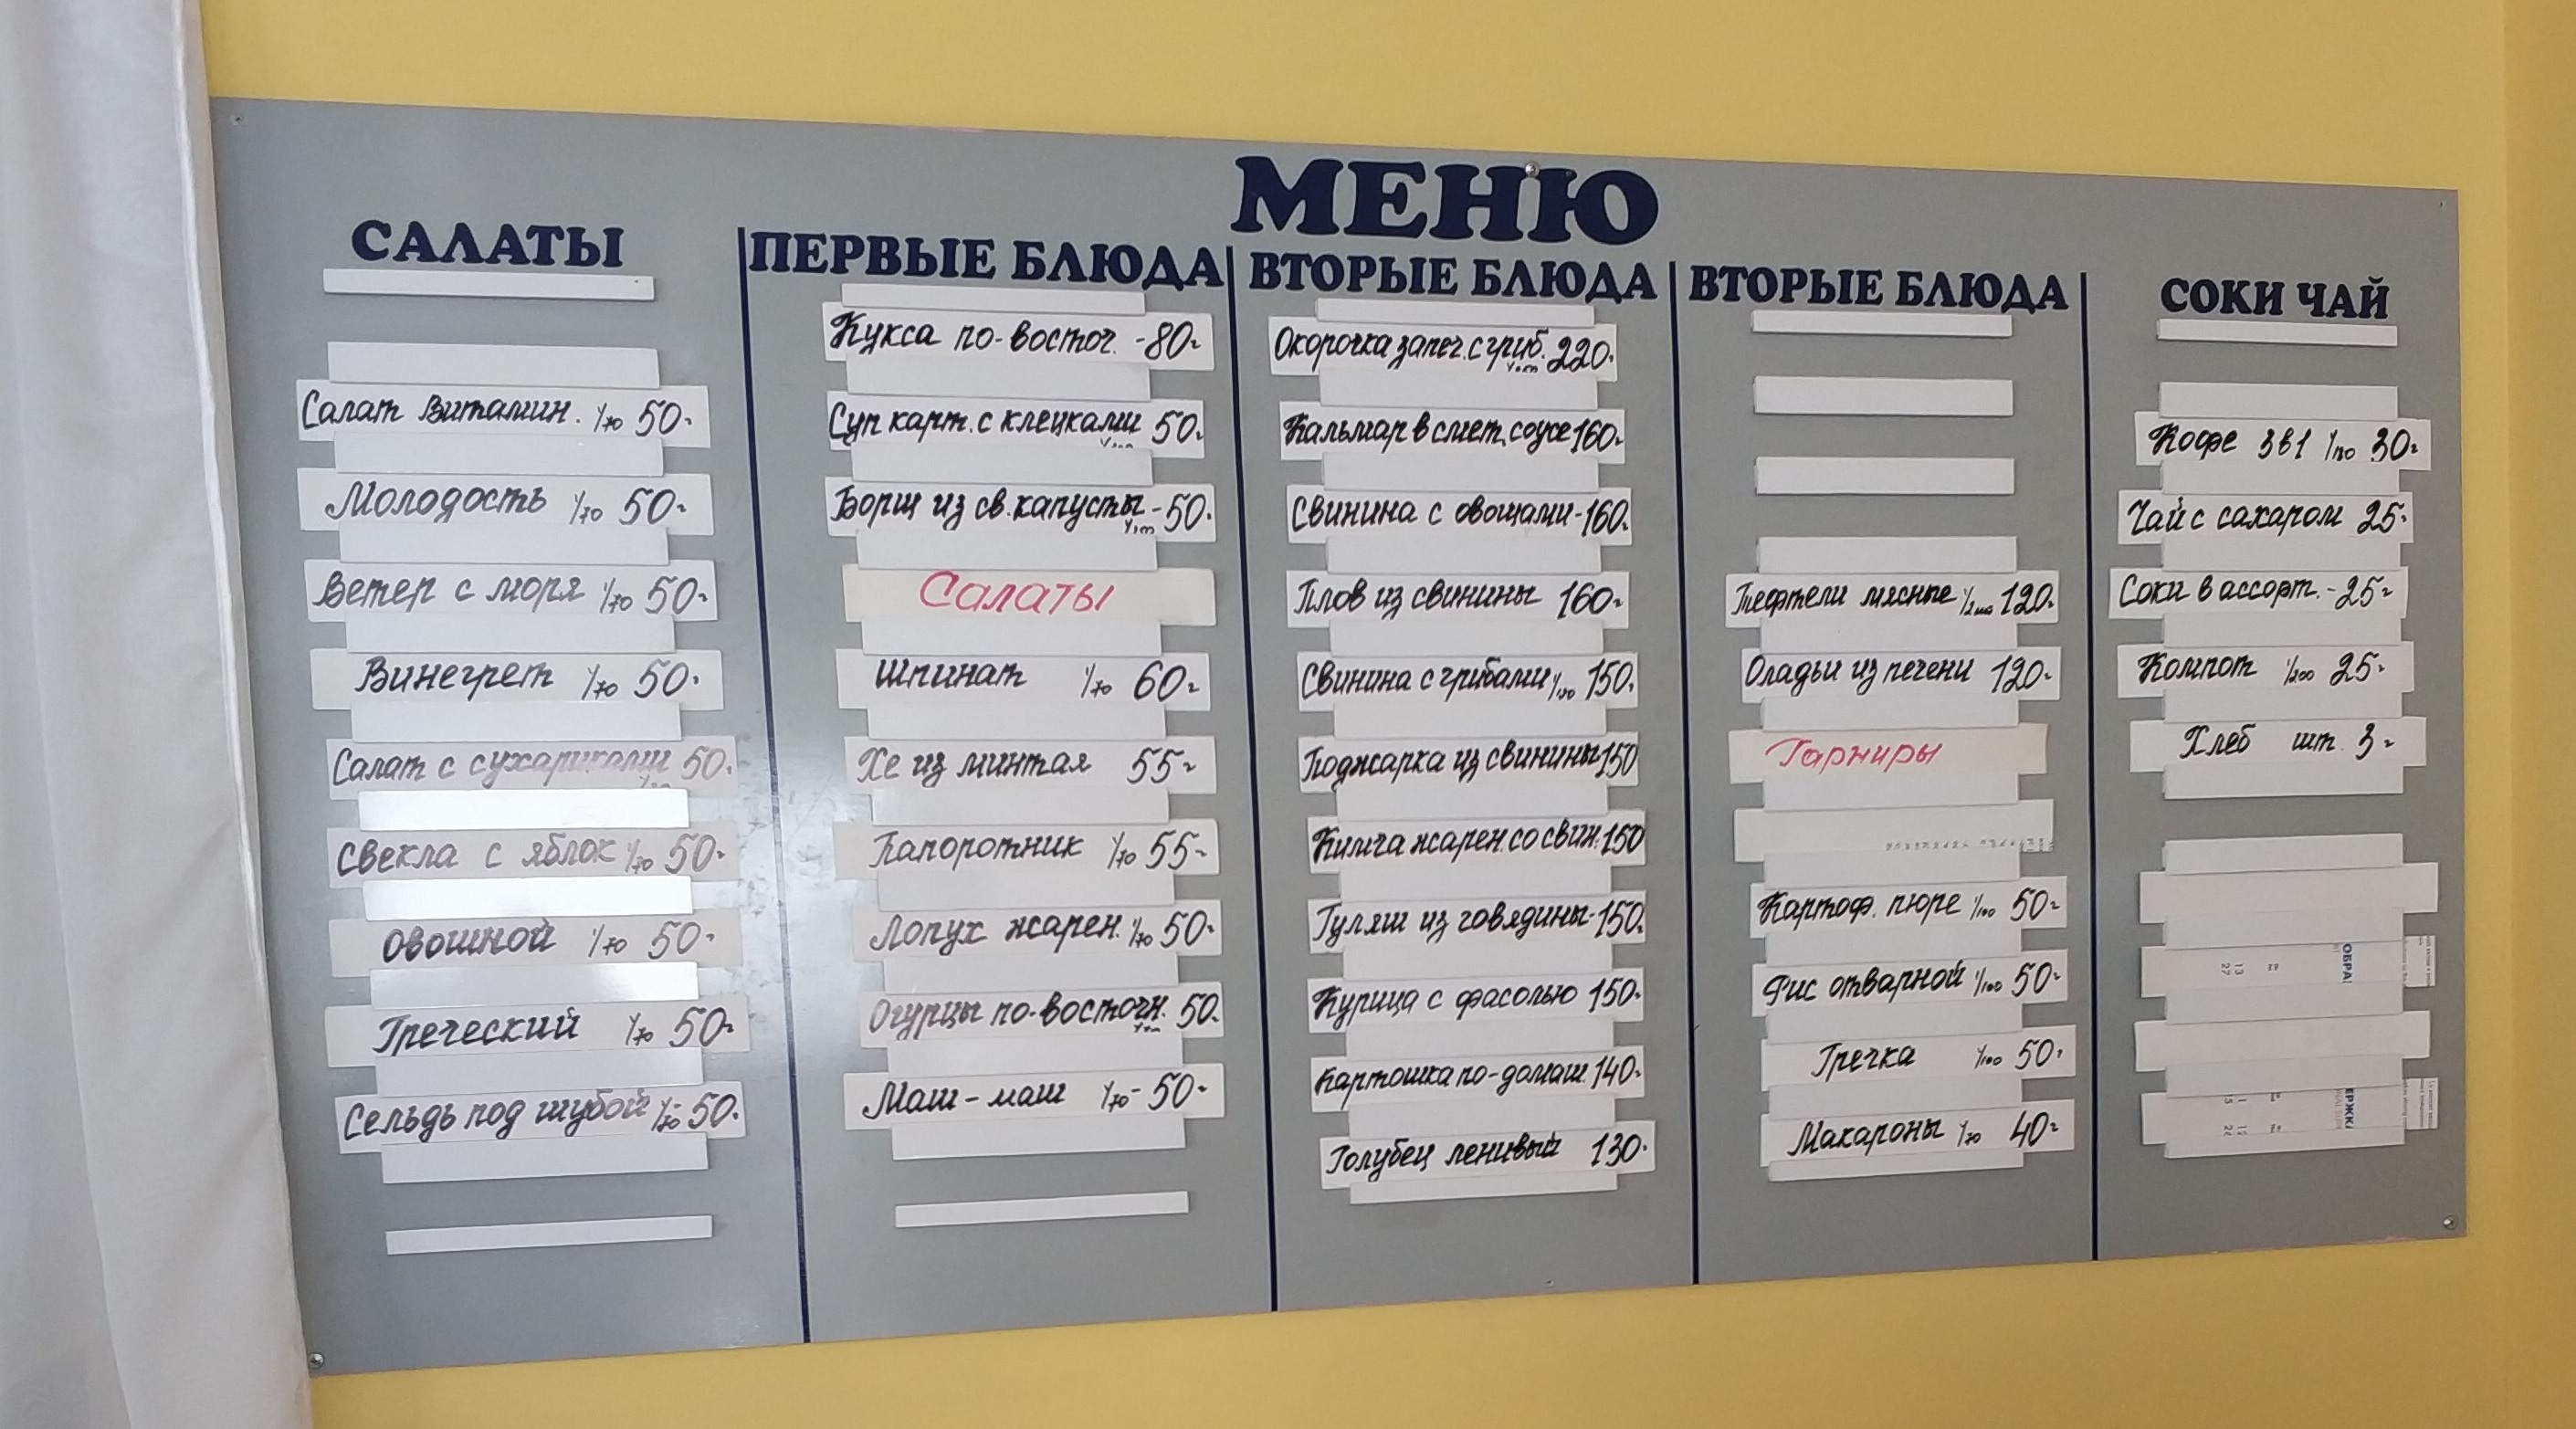 МЕНЮ
САЛАТЫ
Салат Витамин. 1/70 50-
Молодость 1/70 50-
Ветер с моря 1/70 50-
Винегрет 1/70 50-
Салат с сухариками 50-
Свекла с яблок 1/70 50-
Овощной 1/70 50-
Греческий 1/70 50-
Сельдь под шубой 1/70 50-
ПЕРВЫЕ БЛЮДА
Кукса по-восточ. -80-
Суп карт. с клецками 50-
Борщ из св. капусты -50-
Салаты
Шпинат 1/70 60-
Хе из минтая 55-
Папоротник 1/70 55-
Лопух жарен. 1/70 50-
Огурцы по-восточн. 50-
Маш-маш 1/70- 50-
ВТОРЫЕ БЛЮДА
Окорочка запеч. с гриб. 220-
Кальмар в смет. соусе 160-
Свинина с овощами -160-
Плов из свинины 160-
Свинина с грибами 150-
Поджарка из свинины 150
Кимча жарен. со свин. 150
Гуляш из говядины -150-
Курица с фасолью 150-
Картошка по-домаш. 140-
Голубец ленивый 130-
ВТОРЫЕ БЛЮДА
Тефтели мясные 120-
Оладьи из печени 120-
Гарниры
Картоф. пюре 1/100 50-
Рис отварной 1/100 50-
Гречка 1/100 50-
Макароны 1/70 40-
СОКИ ЧАЙ
Кофе 3в1 30-
Чай с сахаром 25-
Соки в ассорт. -25-
Компот 1/200 25-
Хлеб шт. 3-